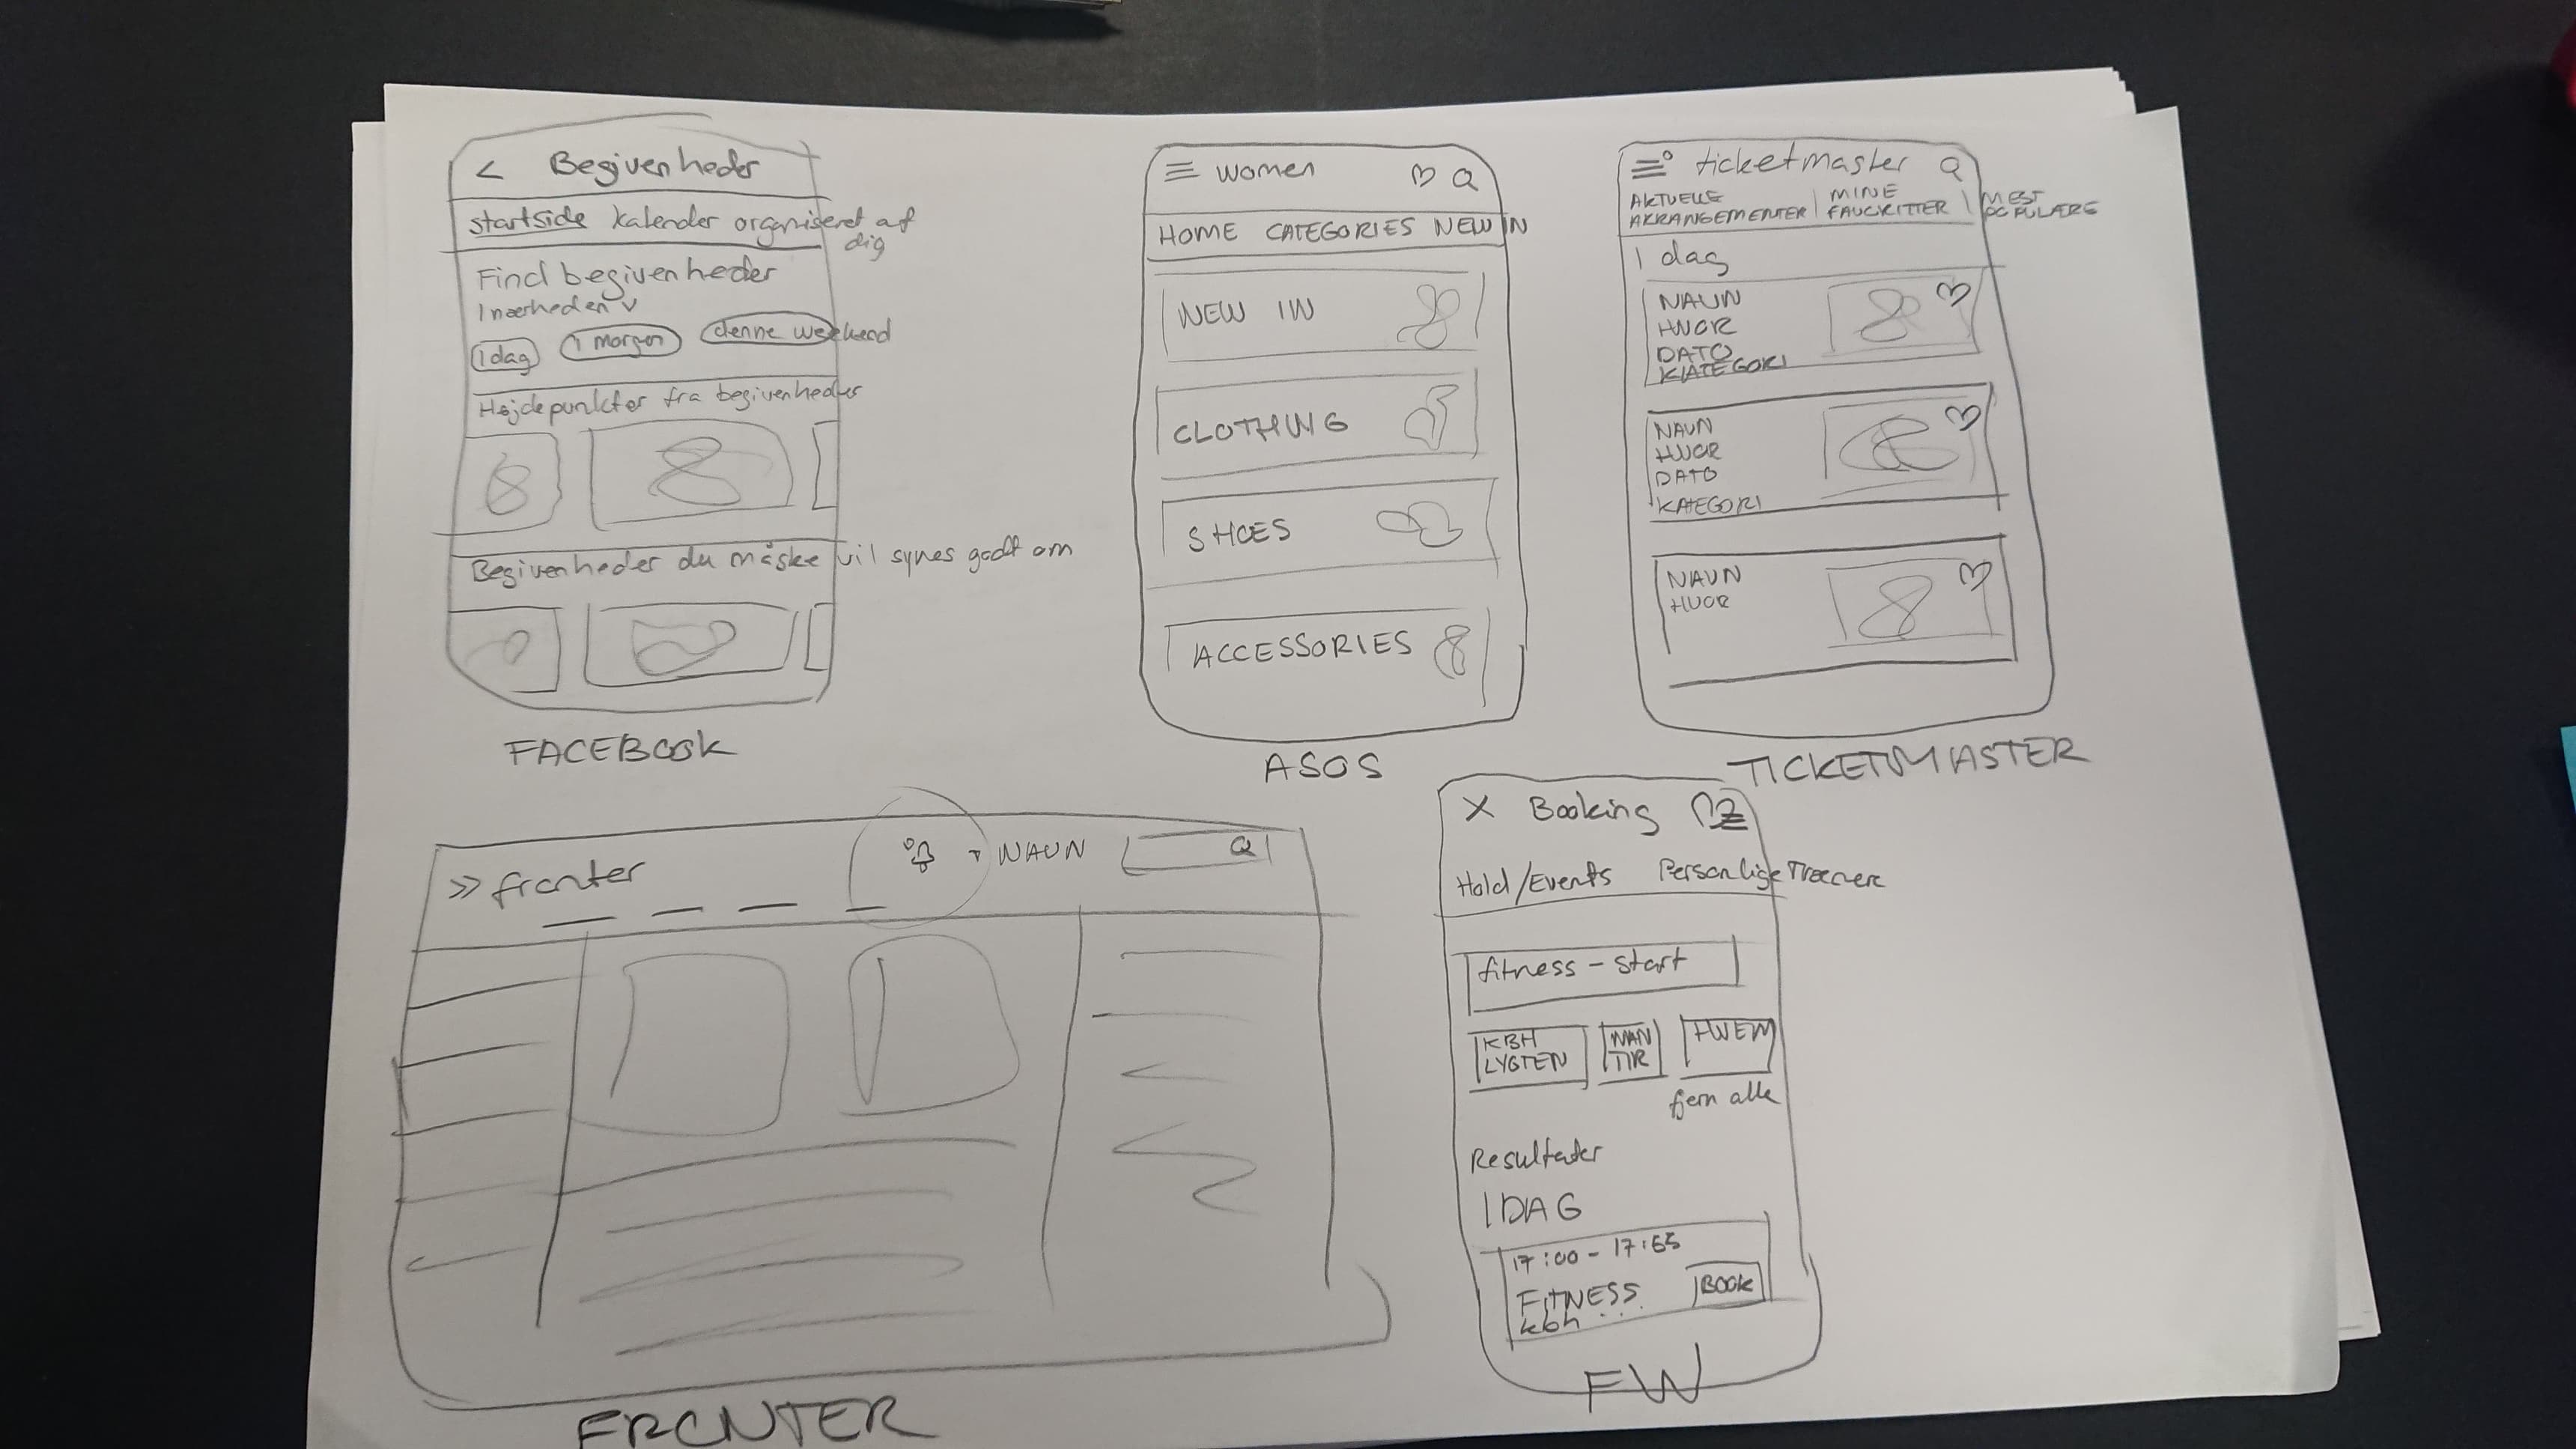 < Begivenheder
startside kalender organiseret af dig
Find begivenheder
I nærheden v
I dag I morgen denne weekend
Højdepunkter fra begivenheder
Begivenheder du måske vil synes godt om
FACEBOOK
women
HOME CATEGORIES NEW IN
NEW IN
CLOTHING
SHOES
ACCESSORIES
ASOS
ticketmaster
AKTUELLE ARRANGEMENTER | MINE FAVORITTER | MEST POPULÆRE
I dag
NAVN
HVOR
DATO
KATEGORI
NAVN
HVOR
DATO
KATEGORI
NAVN
HVOR
TICKETMASTER
>> fronter
NAVN
FRONTER
X Booking
Hold/Events Personlige Trænere
fitness - start
KBH LYGTEN
MAN TIR
HVEM
fjern alle
Resultater
I DAG
17:00 - 17:55
FITNESS
kbh ...
BOOK
FW